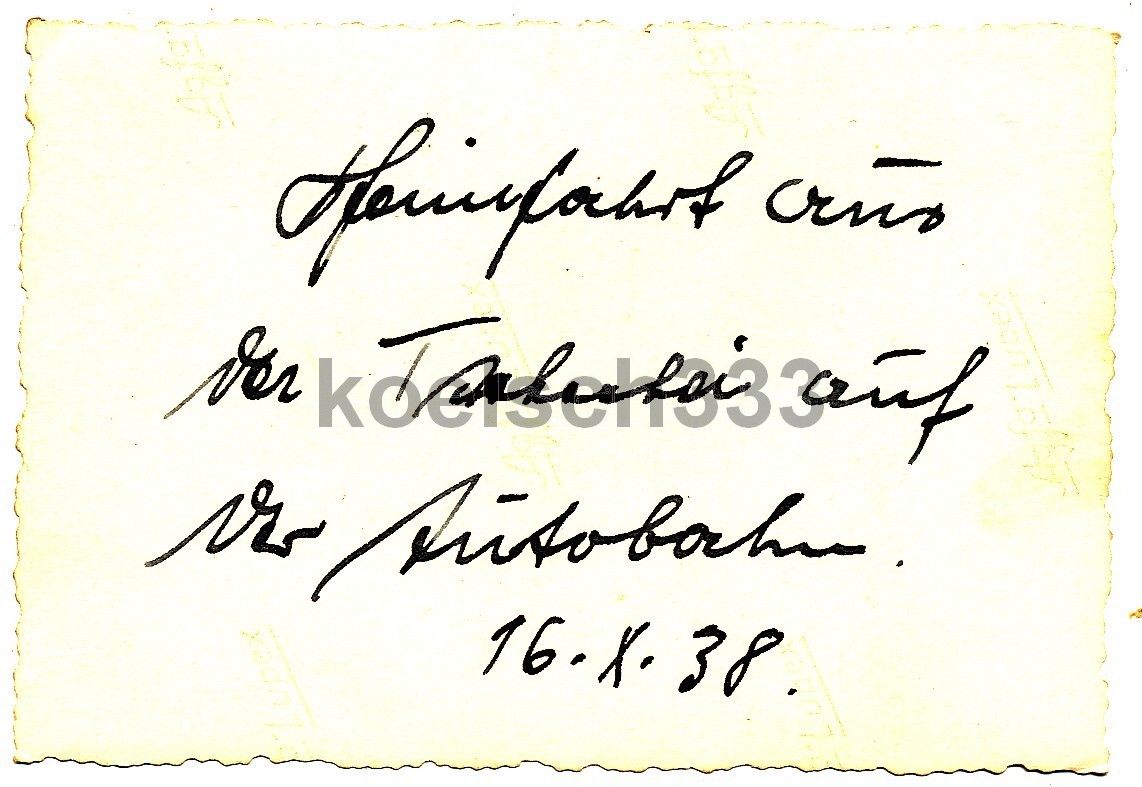 Heimfahrt aus
der Tschechei auf
der Autobahn.
16.X.38.
koelsch333